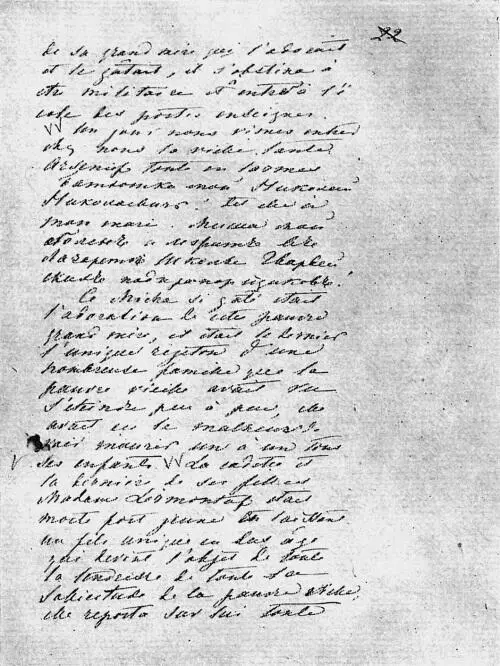 de sa grand mère qui l'adorait
et le gâtait, il s'obstina à
être militaire et entra à l'é
cole des portes enseignes.
Un jour nous vîmes entrer
chez nous la vieille tante
Arsenieff toute en larmes
Батюшка мой Николай
Николаевич! dit elle à
mon mari. Миша мой
болен и лежит въ
Лазарете Школы Гвардей
скихъ подпрапорщиковъ!
Ce Micha si gâté était
l'adoration de cette pauvre
grand mère, il était le dernier
l'unique rejeton d'une
nombreuse famille que la
pauvre vieille avait vu
s'éteindre peu à peu, elle
avait eu le malheur de
voir mourir un à un tous
ses enfants. La cadette et
la dernière de ses filles
Madame Lermontoff était
morte fort jeune en laissant
un fils unique en bas âge
qui devint l'objet de toute
la tendresse de toute la
sollicitude de la pauvre vieille,
elle reporta sur lui toute